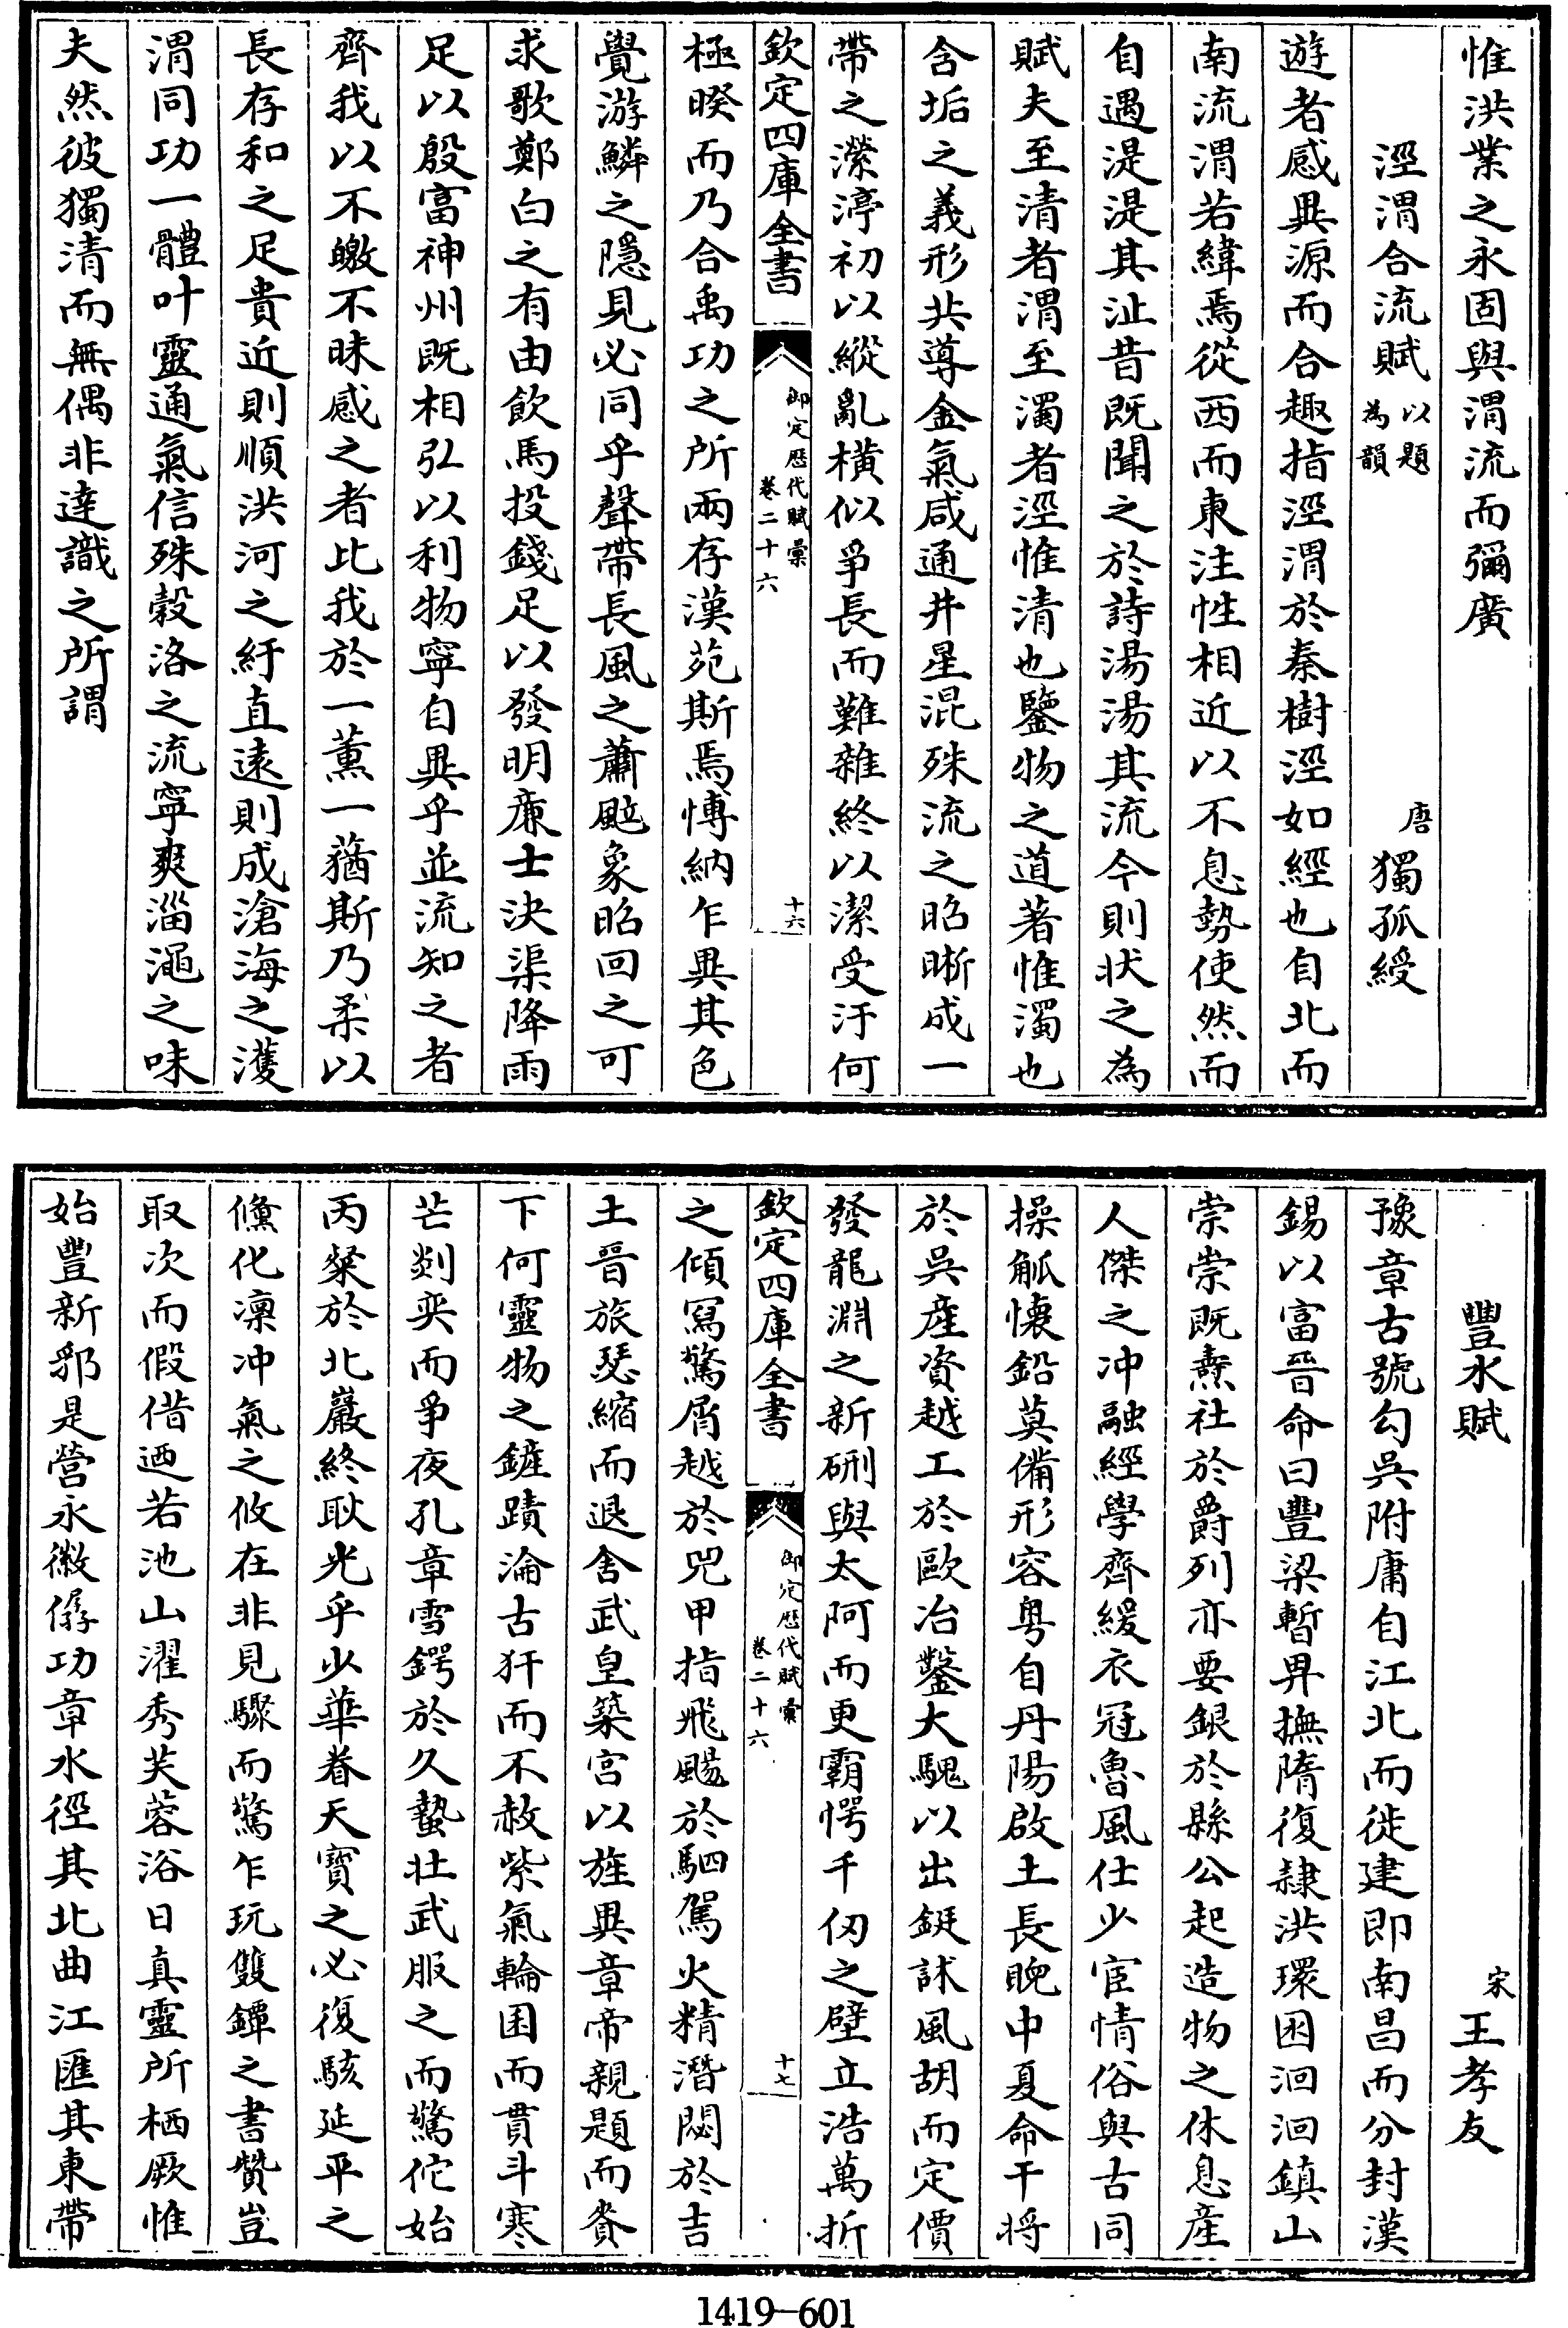 惟洪業之永固與渭流而彌廣
涇渭合流賦以題為韻 唐獨孤綬
遊者感異源而合趣指涇渭於秦樹涇如經也自北而
南流渭若緯焉從西而東注性相近以不息勢使然而
自遇湜湜其沚昔既聞之於詩湯湯其流今則狀之為
賦夫至清者渭至濁者涇惟清也鑒物之道著惟濁也
含垢之義形共導金氣咸通井星混殊流之昭晣成一
帶之瀠渟初以縱亂橫似爭長而難雜終以潔受汙何
欽定四庫全書
御定歷代賦彙
卷二十六
十六
極暌而乃合禹功之所兩存漢苑斯焉愽納乍異其色
覺游鱗之隱見必同乎聲帶長風之蕭颭象昭回之可
求歌鄭白之有由飲馬投錢足以發明廉士決渠降雨
足以殷富神州既相弘以利物寧自異乎並流知之者
齊我以不皦不昧感之者比我於一薰一蕕斯乃柔以
長存和之足貴近則順洪河之紆直遠則成滄海之濩
渭同功一體叶靈通氣信殊榖洛之流寧爽淄澠之味
夫然彼獨清而無偶非達識之所謂
豐水賦 宋王孝友
豫章古號勾吳附庸自江北而徙建即南昌而分封漢
錫以富晉命曰豐梁暫畀撫隋復隷洪環囷洄洄鎮山
崇崇既燾社於爵列亦要銀於縣公起造物之休息産
人傑之冲融經學齊緩衣冠魯風仕少宦情俗與古同
操觚懷鉛莫備形容粤自丹陽啟土長睨中夏命干將
於吳産資越工於歐冶鑿大騩以出鋌訹風胡而定價
發龍淵之新硎與太阿而更霸愕千仭之壁立浩萬折
欽定四庫全書
御定歷代賦彙
卷二十六
十七
之傾寫驚屑越於兕甲指飛颺於駟駕火精潛閟於吉
土晉旅瑟縮而退舍武皇築宫以旌異章帝親題而賚
下何靈物之鏟蹟淪古犴而不赦紫氣輪囷而貫斗寒
芒剡奕而爭夜孔章雪鍔於久蟄壯武服之而驚佗始
丙粲於北巖終耿光乎少華眷天寶之必復駭延平之
儵化凛冲氣之攸在非見驟而驚乍玩雙鐔之書贊豈
取次而假借迺若池山濯秀芙蓉浴日真靈所栖厥惟
始豐新邪是營永徽僝功章水徑其北曲江匯其東帶
1419-601